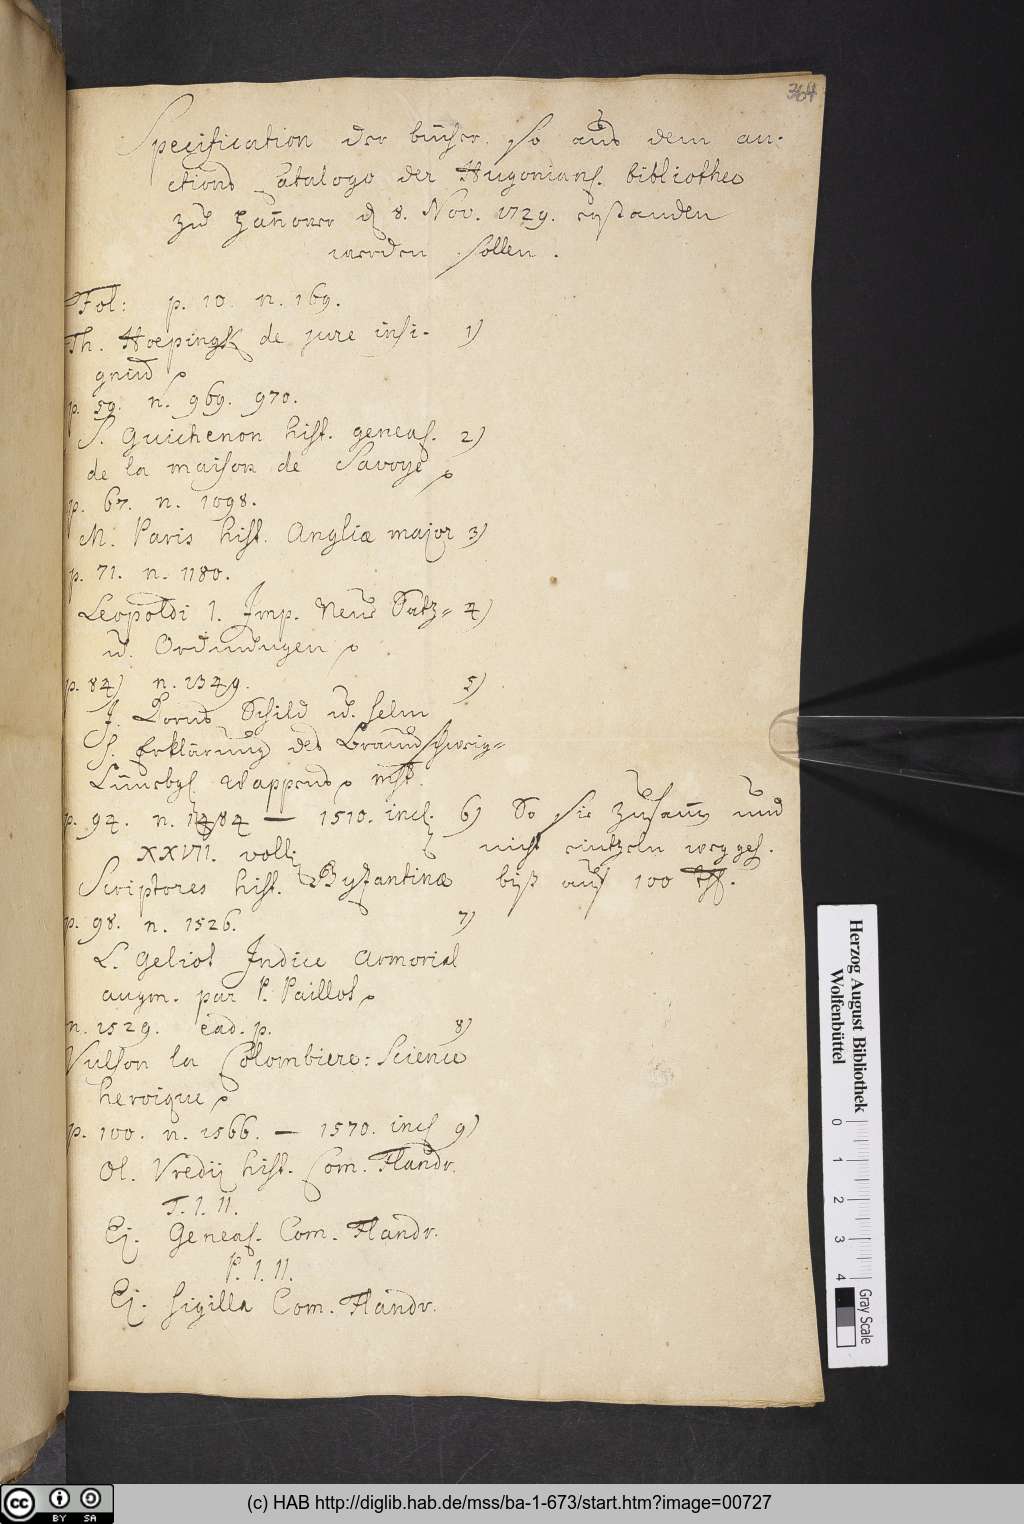 364
Specification der bücher, so aus dem au-
ctions Catalogo der Hugonians. bibliothec
zu Hañover d. 8. Nov. 1729. erstanden
werden sollen.
Fol: p. 10. n. 169.
Th. Hoepingk de jure insi- 1)
gniu
p. 59. n. 969. 970.
S. Guichenon hist. geneal. 2)
de la maison de Savoye
p. 67. n. 1098.
M. Paris hist. Angliæ major 3)
p. 71. n. 1180.
Leopoldi I. Imp. Neue Satz= 4)
u. Ordnungen
p. 84) n. 1349. 5)
J. Dorns Schild u. helm
s. Erklärung des Braunschweig=
Lüneb. Wappens
p. 94. n. 1484 — 1510. incl. 6) So sie zusam̄ und
XXVII. voll. nicht eintzeln weg geh.
Scriptores hist. Byzantinæ biß auf 100
p. 98. n. 1526. 7)
L. Geliot Indice Armorial
augm. par P. Paillot
n. 1529. ead. p. 8)
Vulson la Colombiere: Science
heroique
p. 100. n. 1566. — 1570. incl. 9)
Ol. Vredij hist. Com. Flandr.
T. I. II.
Ej. Geneal. Com. Flandr.
P. I. II.
Ej. Sigilla Com. Flandr.
Herzog August Bibliothek
Wolfenbüttel
0 1 2 3 4
Gray Scale
cc BY SA
(c) HAB http://diglib.hab.de/mss/ba-1-673/start.htm?image=00727